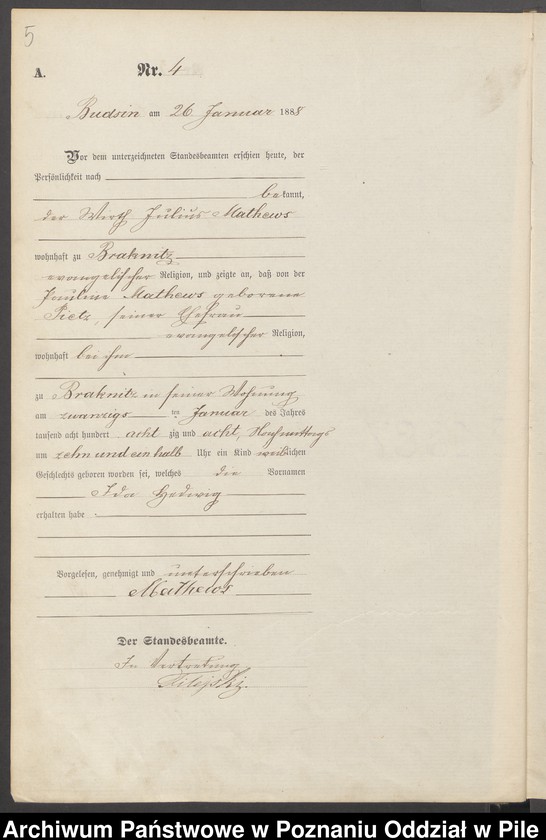 5
A. Nr. 4
Budsin am 26 Januar 1888
Vor dem unterzeichneten Standesbeamten erschien heute, der
Persönlichkeit nach
bekannt,
der Wirth Julius Mathews
wohnhaft zu Braknitz
evangelischer Religion, und zeigte an, daß von der
Pauline Mathews geborene
Pietz, seiner Ehefrau
evangelischer Religion,
wohnhaft bei ihm
zu Braknitz in seiner Wohnung
am zwanzigs ten Januar des Jahres
tausend acht hundert acht zig und acht, Nachmittags
um zehn und ein halb Uhr ein Kind weiblichen
Geschlechts geboren worden sei, welches die Vornamen
Ida Hedwig
erhalten habe
Vorgelesen, genehmigt und unterschrieben
Mathews
Der Standesbeamte.
In Vertretung
Archiwum Państwowe w Poznaniu Oddział w Pile